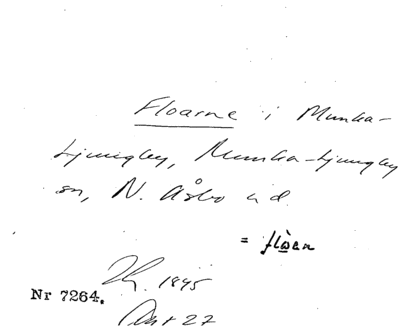 Floarne i Munka-
Ljungby, Munka-Ljungby
sn, N. Åsbo hd.
= flòen
1895
Nr 7264.
27